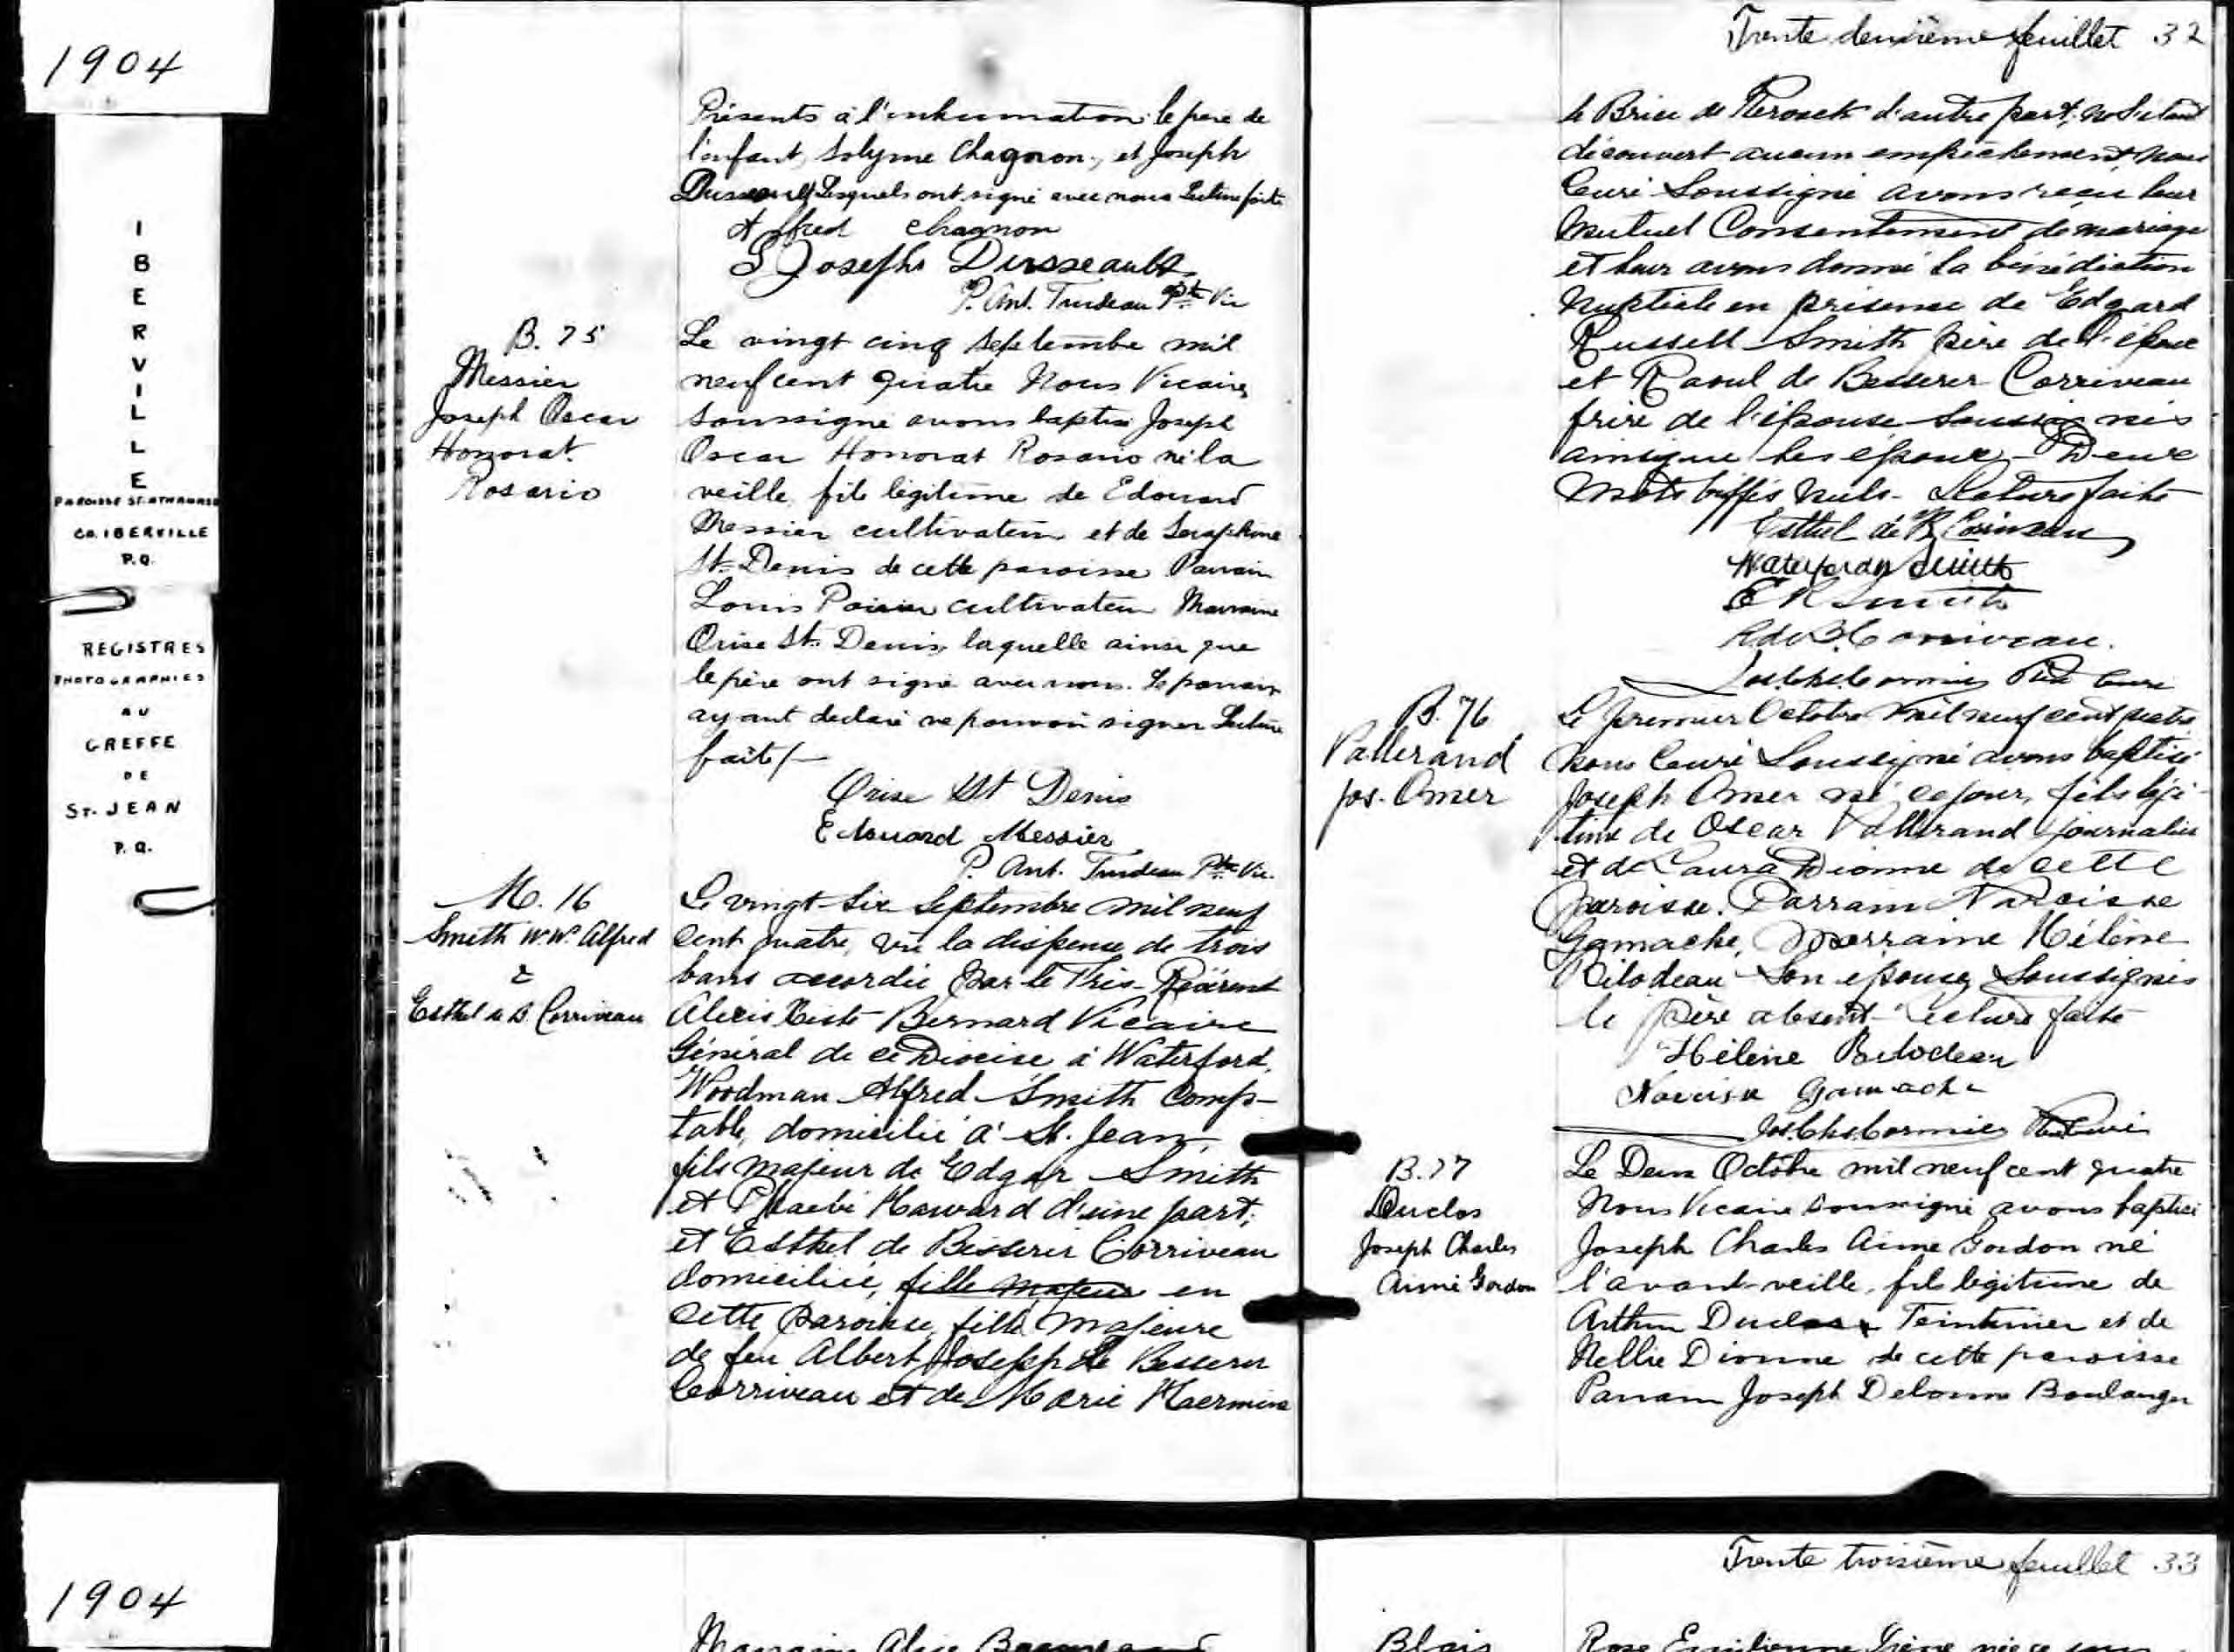 1904
I
B
E
R
V
I
L
L
E
PAROISSE ST-ATHANASE
CO. IBERVILLE
P.Q.
REGISTRES
PHOTOGRAPHIES
AU
GREFFE
DE
ST. JEAN
P.Q.
1904
Présents à l'inhumation: le père de
l'enfant, Solyme Chagnon, et Joseph
Dusseault Lesquels ont signé avec nous Lecture faite
Alfred Chagnon
Joseph Dusseault
P. Ant. Trudeau Ptre Vic
B. 75
Messier
Joseph Oscar
Honorat
Rosario
Le vingt cinq septembre mil
neuf cent quatre Nous Vicaire
soussigné avons baptisé Joseph
Oscar Honorat Rosario né la
veille, fils légitime de Edouard
Messier cultivateur et de Séraphine
St-Denis de cette paroisse Parrain
Louis Poirier cultivateur Marraine
Orise St-Denis, laquelle ainsi que
le père ont signé avec nous. Le parrain
ayant déclaré ne pouvoir signer Lecture
faite/-
Orise St Denis
Edouard Messier
P. Ant. Trudeau Ptre Vic.
M. 16
Smith W.W. Alfred
&
Esthel de B. Corriveau
Le vingt-six Septembre mil neuf
cent quatre, vu la dispense de trois
bans accordée par le Très-Révérend
Alexis Xiste Bernard Vicaire
Général de ce Diocèse à Waterford,
Woodman Alfred Smith Comp-
table, domicilié à St. Jean,
fils majeur de Edgar Smith
et Phaebé Haward d'une part;
et Esthel de Besserer Corriveau
domiciliée, fille majeur en
cette paroisse, fille majeure
de feu Albert Joseph de Besserer
Corriveau et de Marie Haermine
Trente deuxième feuillet 32
le Brice de d'autre part; ne s'étant
découvert aucun empêchement, nous
Curé Soussigné avons reçu leur
mutuel Consentement de mariage
et leur avons donné la bénédiction
nuptiale en présence de Edgard
Russell Smith père de l'époux
et Raoul de Besserer Corriveau
frère de l'épouse soussignés
ainsi que les époux - Deux
mots biffés nuls - Lecture faite
Esthel de B. Corriveau
Waterford Smith
E R Smith
R de B. Corriveau.
Jos. Chs. Cormier Ptre Curé
B. 76
Vallerand
Jos. Omer
Le premier Octobre mil neuf cent quatre
nous Curé Soussigné avons baptisé
Joseph Omer né ce jour, fils légi-
time de Oscar Vallerand journalier
et de Laura Dionne de cette
paroisse. Parrain Narcisse
Gamache, Marraine Hélène
Bilodeau son épouse, Soussignés
le père absent - Lecture faite
Hélène Bilodeau
Narcisse Gamache
Jos. Chs. Cormier Ptre Curé
B. 77
Duclos
Joseph Charles
Aimé Gordon
Le Deux Octobre mil neuf cent quatre
Nous Vicaire soussigné avons baptisé
Joseph Charles Aimé Gordon né
l'avant-veille, fils légitime de
Arthur Duclos Teinturier et de
Nellie Dionne de cette paroisse
Parrain Joseph Delorme Boulanger
Trente troisième feuillet 33
Marraine Alice
Blais
Rose Emilienne Irène née ce jour